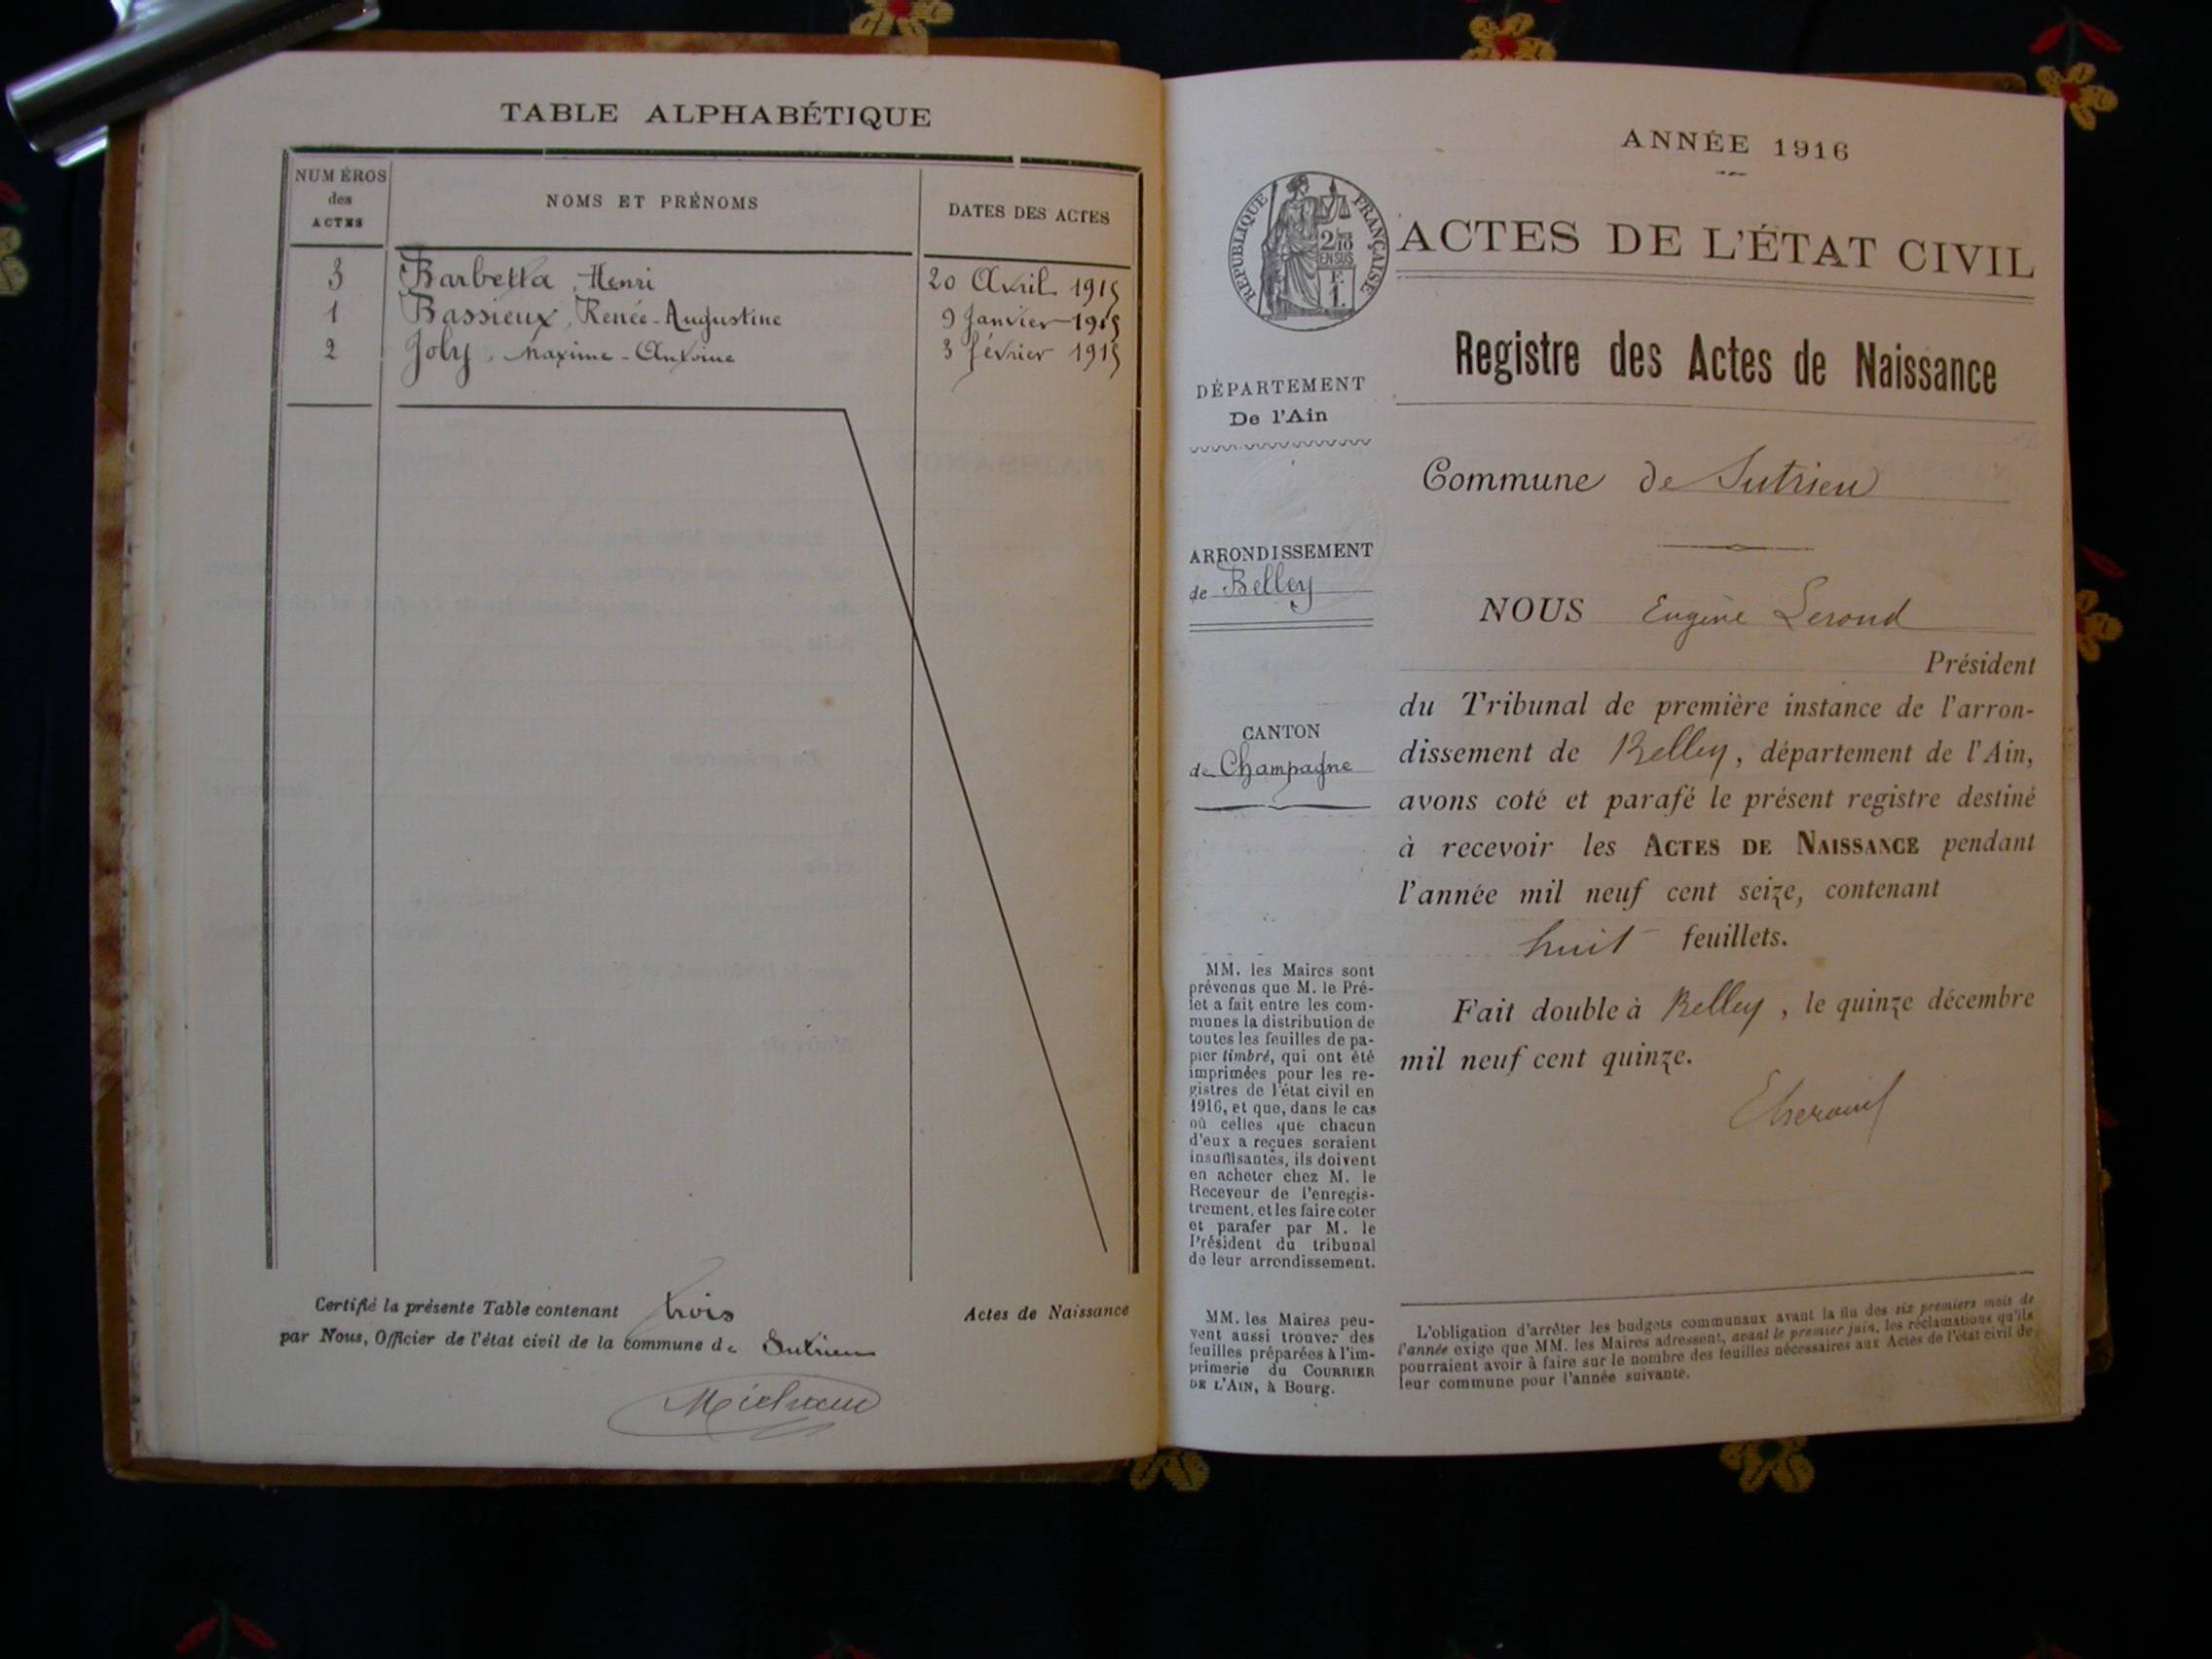 TABLE ALPHABÉTIQUE
NUMÉROS des ACTES
NOMS ET PRÉNOMS
DATES DES ACTES
3 Barbetta, Henri 20 Avril 1915
1 Bassieux, Renée-Augustine 9 Janvier 1915
2 Joly, Maxime-Antoine 3 février 1915
Certifié la présente Table contenant trois Actes de Naissance
par Nous, Officier de l'état civil de la commune de Sutrieu
ANNÉE 1916
RÉPUBLIQUE FRANÇAISE
ACTES DE L'ÉTAT CIVIL
Registre des Actes de Naissance
DÉPARTEMENT
De l'Ain
Commune de Sutrieu
ARRONDISSEMENT
de Belley
CANTON
de Champagne
NOUS Eugène Lerond
Président
du Tribunal de première instance de l'arron-
dissement de Belley, département de l'Ain,
avons coté et parafé le présent registre destiné
à recevoir les ACTES DE NAISSANCE pendant
l'année mil neuf cent seize, contenant
huit feuillets.
Fait double à Belley, le quinze décembre
mil neuf cent quinze.
MM. les Maires sont
prévenus que M. le Pré-
fet a fait entre les com-
munes la distribution de
toutes les feuilles de pa-
pier timbré, qui ont été
imprimées pour les re-
gistres de l'état civil en
1916, et que, dans le cas
où celles que chacun
d'eux a reçues seraient
insuffisantes, ils doivent
en acheter chez M. le
Receveur de l'enregis-
trement, et les faire coter
et parafer par M. le
Président du tribunal
de leur arrondissement.
MM. les Maires peu-
vent aussi trouver des
feuilles préparées à l'im-
primerie du COURRIER
DE L'AIN, à Bourg.
L'obligation d'arrêter les budgets communaux avant la fin des six premiers mois de
l'année exige que MM. les Maires adressent, avant le premier juin, les réclamations qu'ils
pourraient avoir à faire sur le nombre des feuilles nécessaires aux Actes de l'état civil de
leur commune pour l'année suivante.